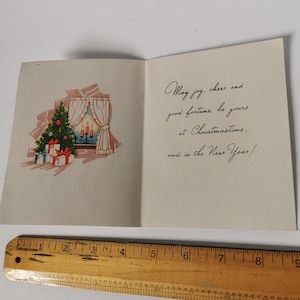 May joy, cheer and
good fortune be yours
at Christmastime,
and in the New Year!
1 2 3 4 5 6 7 8 9